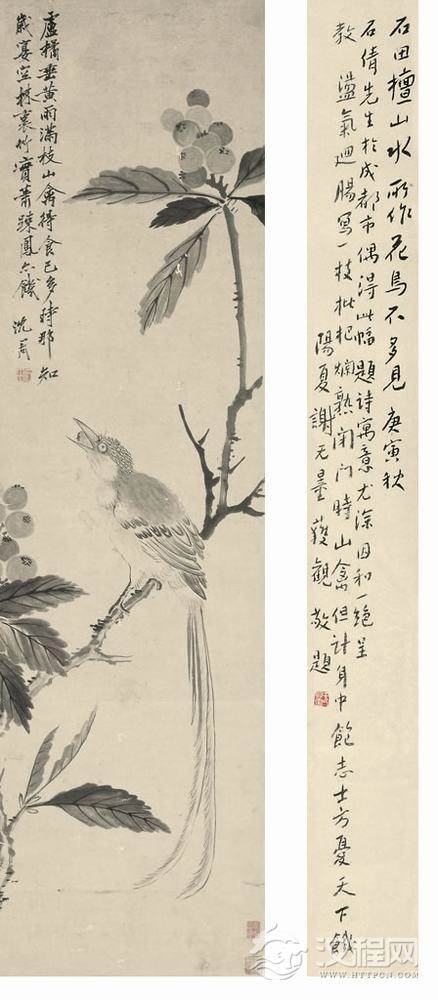 石田擅山水所作花鳥不多見庚寅秋
石倩先生於成都市偶得此幅題詩寓意尤深因和一絕呈
教盪氣迴腸寫一枝枇杷爛熟閉門時山禽但計身中飽志士方憂天下饑
陽夏謝无量獲觀敬題
盧橘垂黃雨滿枝山禽得食已多時那知
歲宴空林裏竹實蕭踈鳳亦饑 沈周
汉程网
HTTPCN.COM